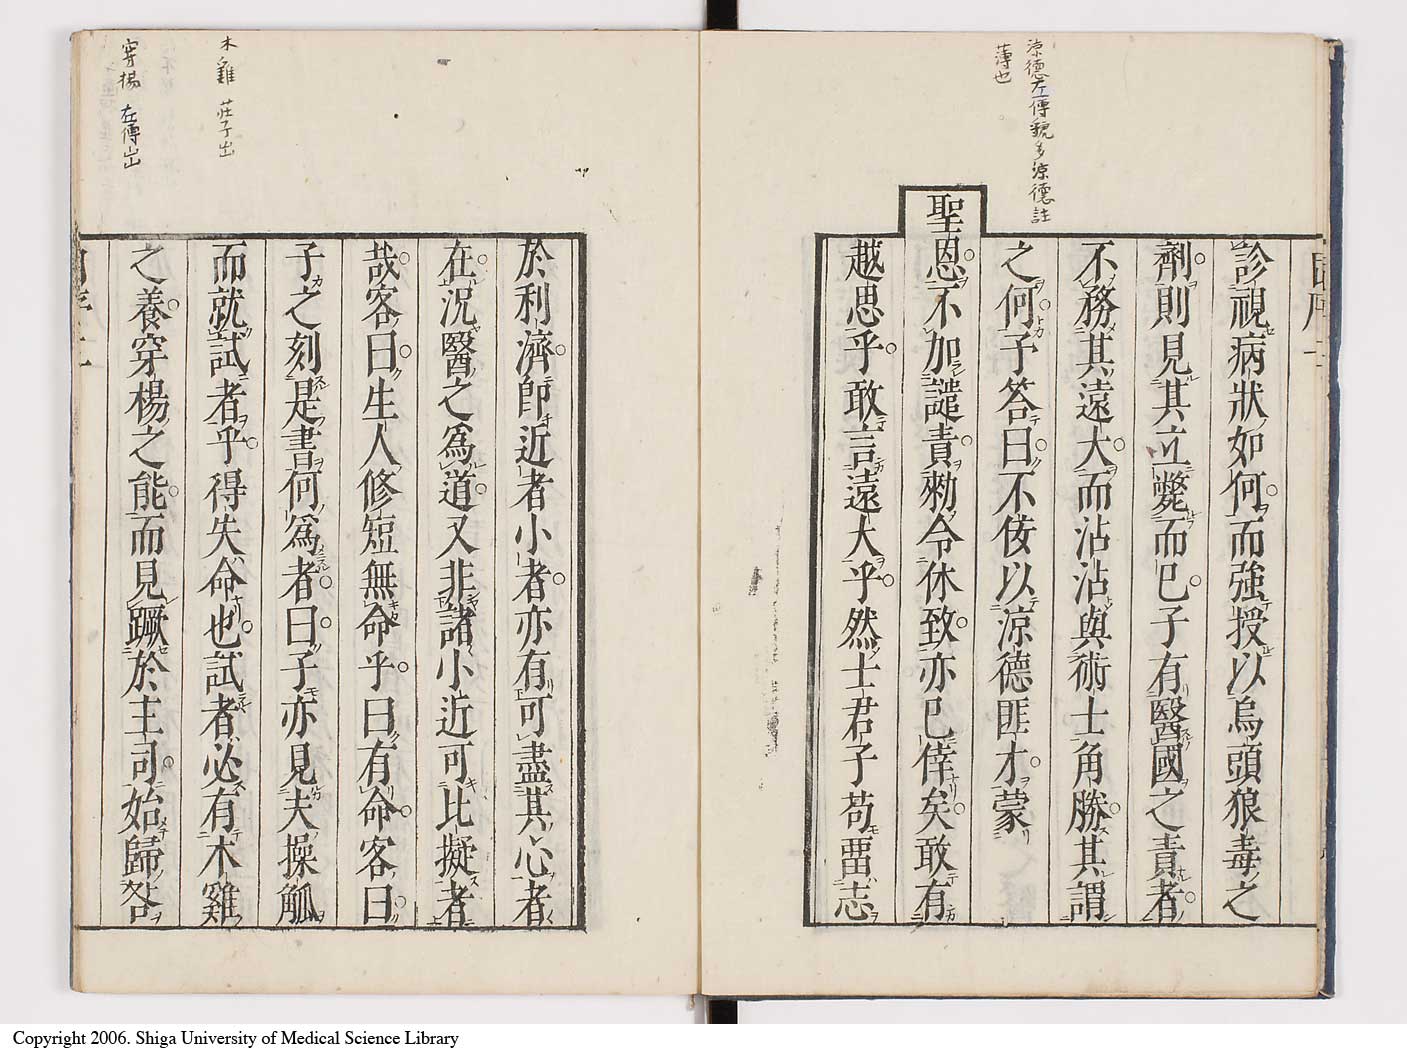 涼德左傳虢多涼德註
薄也
診視病狀如何而強授以烏頭狼毒之
劑則見其立斃而已子有醫國之責者
不務其遠大而沾沾與術士角勝其謂
之何予答曰不佞以涼德匪才蒙
聖恩不加譴責勑令休致亦已倖矣敢有
越思乎敢言遠大乎然士君子苟畱志
木雞 莊子出
穿楊 左傳出
於利濟即近者小者亦有可盡其心者
在況醫之為道又非諸小近可比擬者
哉客曰生人修短無命乎曰有命客曰
子之刻是書何為者曰子亦見夫操觚
而就試者乎得失命也試者必有木雞
之養穿楊之能而見蹶於主司始歸咎
Copyright 2006. Shiga University of Medical Science Library